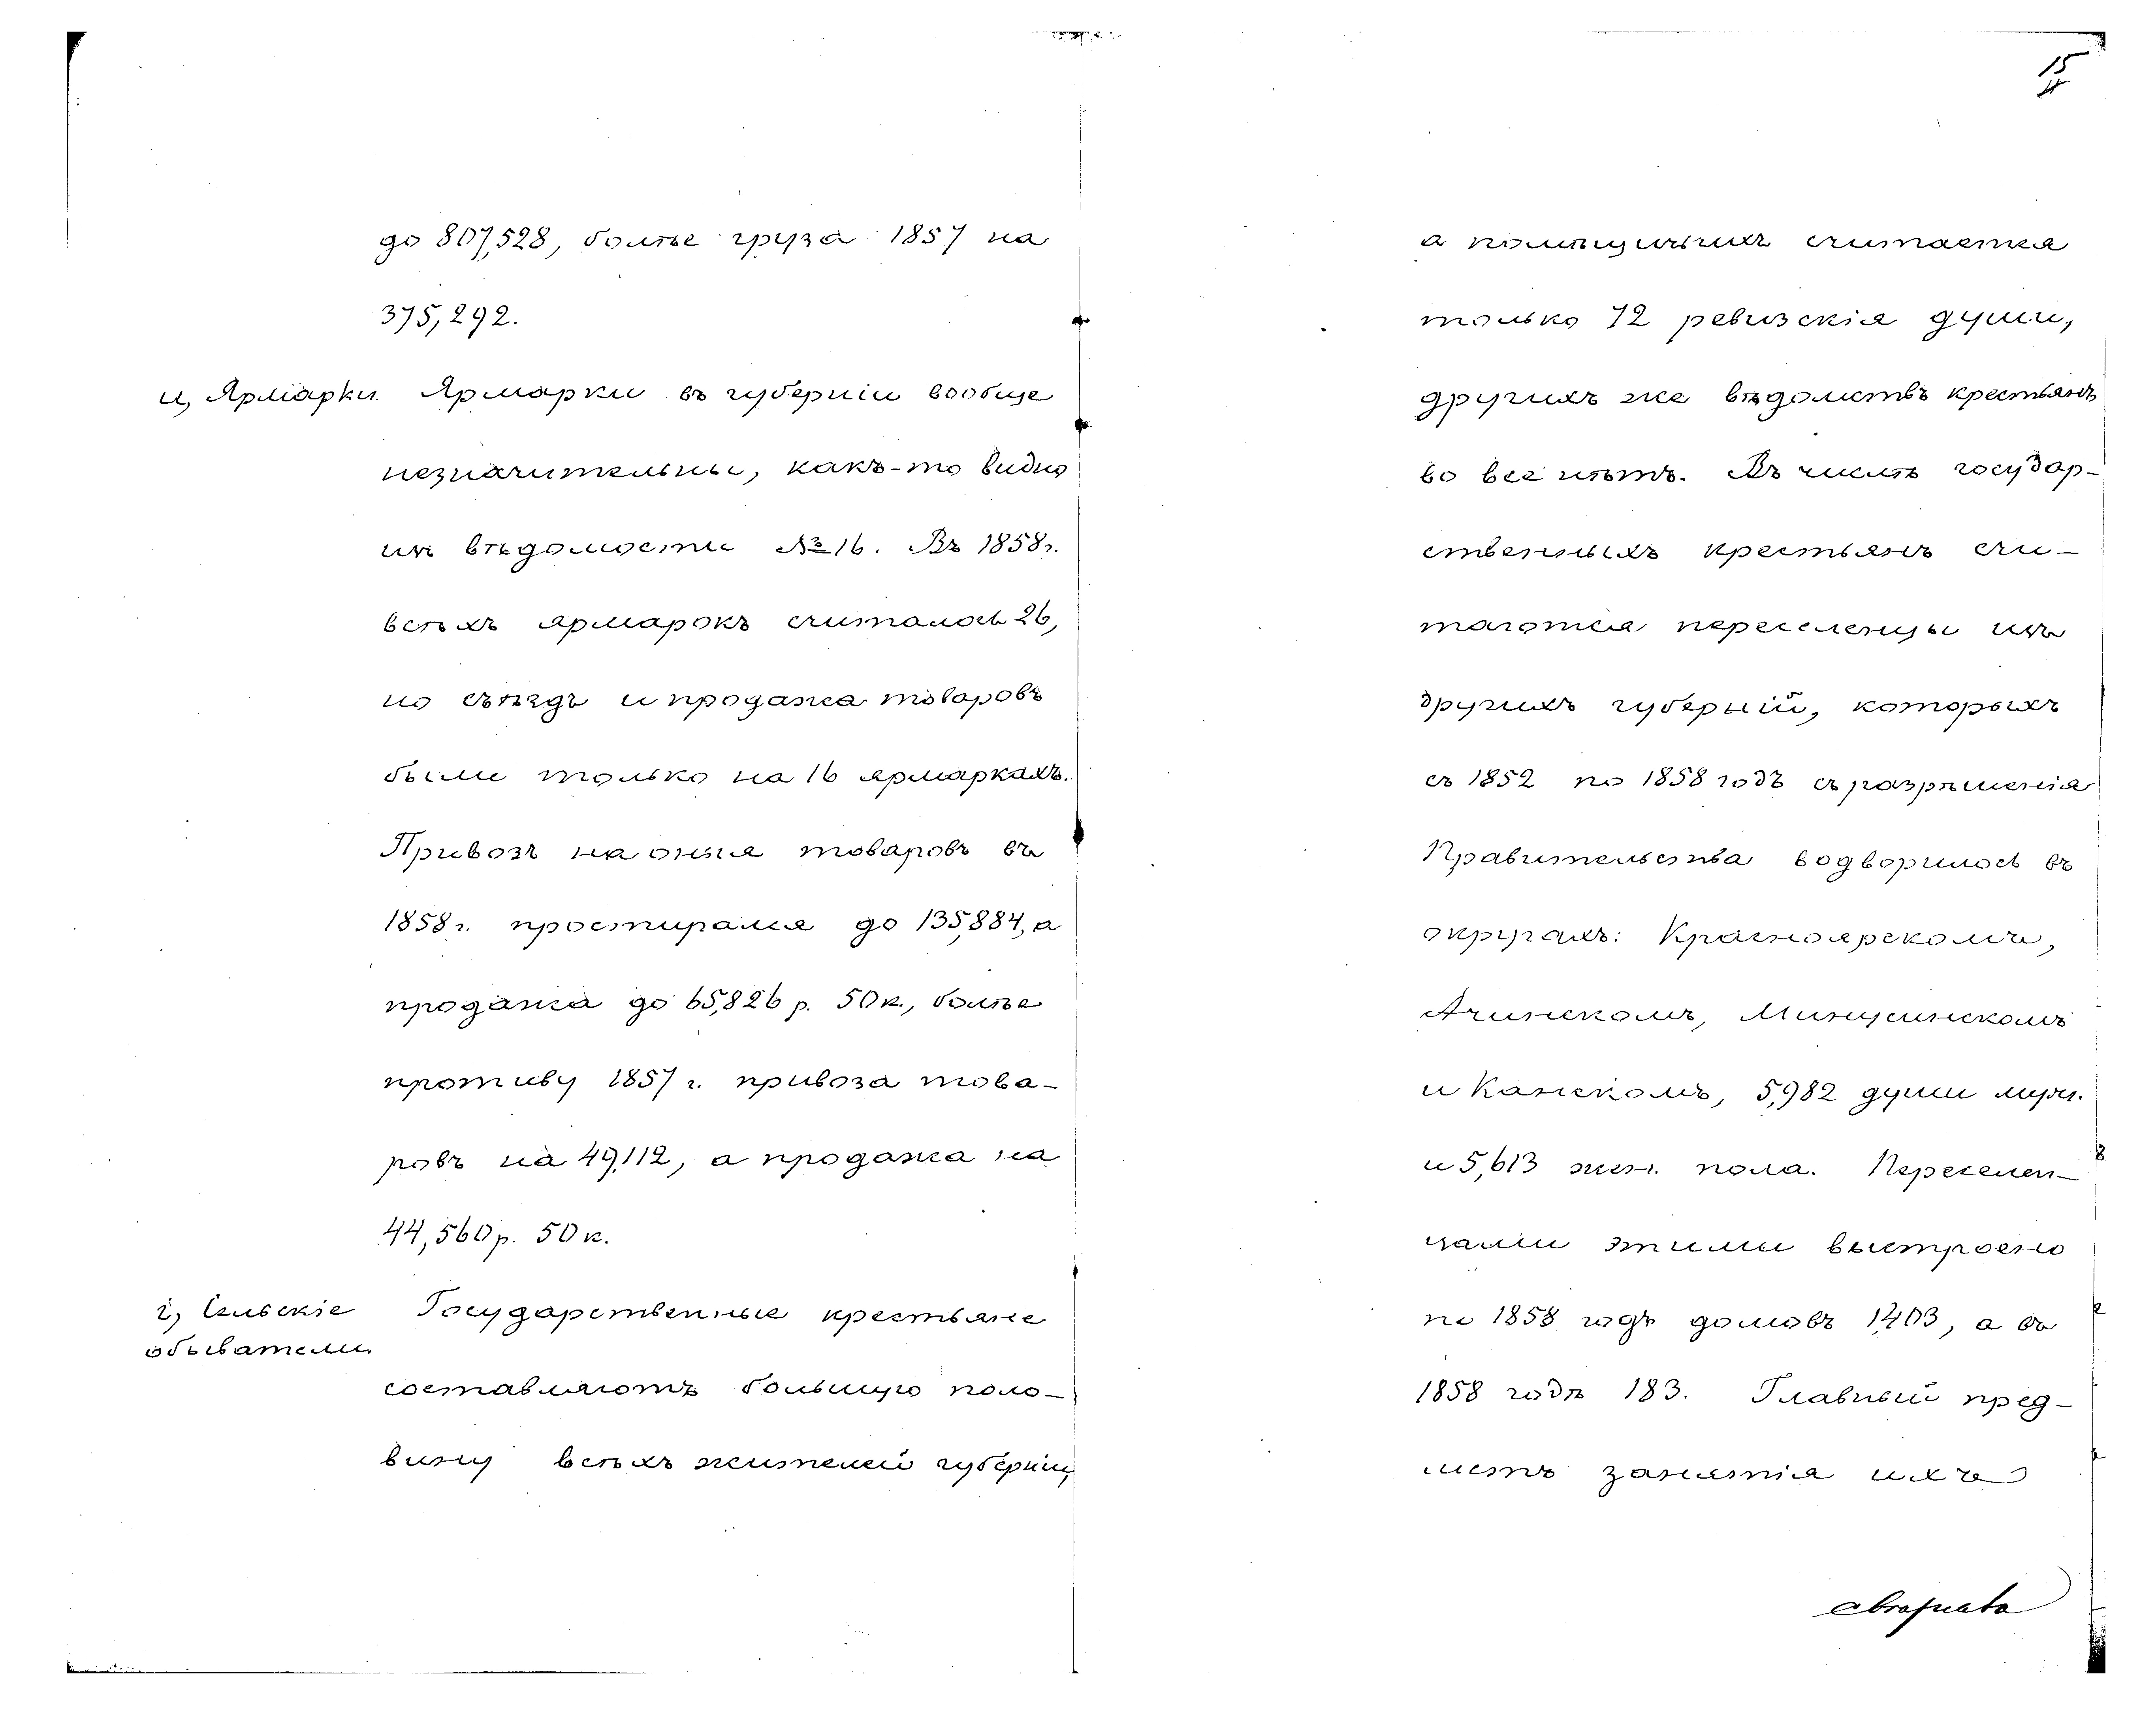 до 807,528, болѣе груза 1857 на
375,292.
и, Ярмарки. Ярмарки въ губерніи вообще
незначительны, какъ-то видно
изъ вѣдомости №16. Въ 1858г.
всѣхъ ярмарокъ считалось 26,
но съѣздъ и продажа товаровъ
были только на 16 ярмаркахъ.
Привозъ на оныя товаровъ въ
1858г. простирался до 135,884, а
продажа до 65,826 р. 50к., болѣе
противу 1857 г. привоза това-
ровъ на 49,112, а продажа на
44,560р. 50к.
і, Сельскіе
обыватели.
Государственные крестьяне
составляютъ большую поло-
вину всѣхъ жителей губерніи,
15
а помѣщичьихъ считается
только 72 ревизскія души,
другихъ же вѣдомствъ крестьянъ
во все нѣтъ. Въ числѣ государ-
ственныхъ крестьянъ счи-
таются переселенцы изъ
другихъ губерній, которыхъ
съ 1852 по 1858 годъ съ разрѣшенія
Правительства водворилось въ
округахъ: Красноярскомъ,
Ачинскомъ, Минусинскомъ
и Канскомъ, 5,982 души муж.
и 5,613 жен. пола. Переселен-
цами этими выстроено
по 1858 годъ домовъ 1,403, а въ
1858 годѣ 183. Главный пред-
метъ занятія ихъ